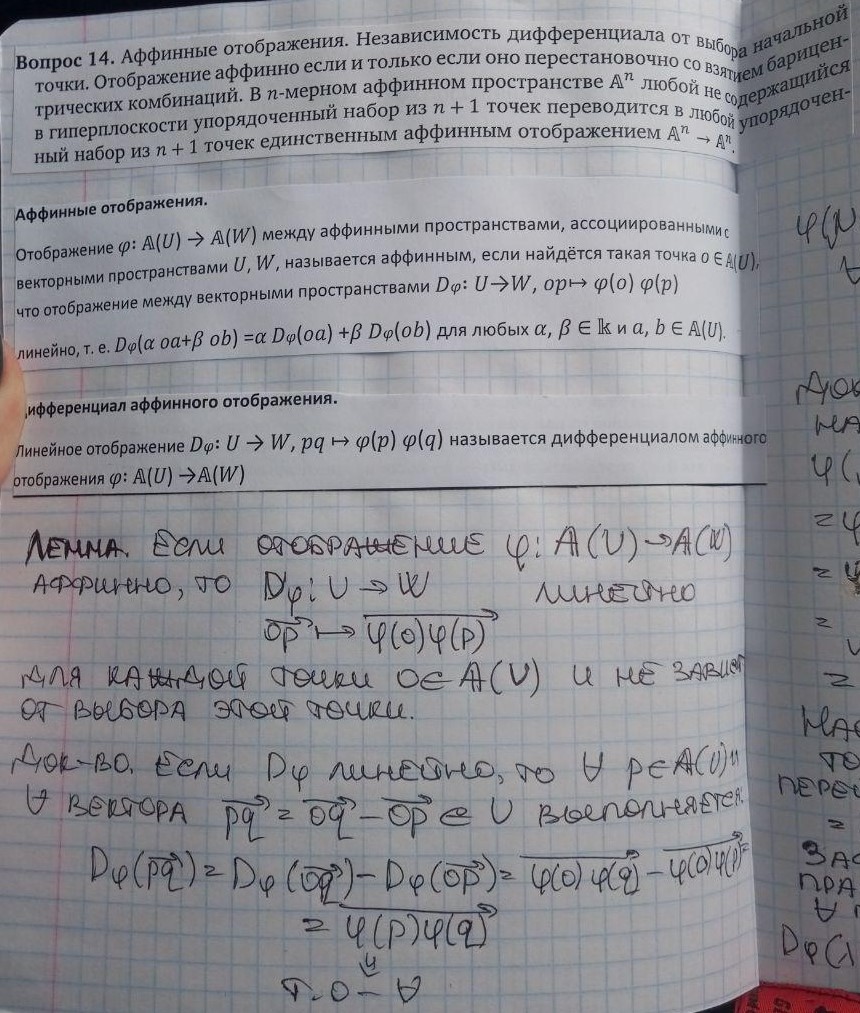 Вопрос 14. Аффинные отображения. Независимость дифференциала от выбора начальной
точки. Отображение аффинно если и только если оно перестановочно со взятием барицен-
трических комбинаций. В n-мерном аффинном пространстве 𝔸ⁿ любой не содержащийся
в гиперплоскости упорядоченный набор из n + 1 точек переводится в любой упорядочен-
ный набор из n + 1 точек единственным аффинным отображением 𝔸ⁿ → 𝔸ⁿ.
Аффинные отображения.
Отображение φ: 𝔸(U) → 𝔸(W) между аффинными пространствами, ассоциированными с
векторными пространствами U, W, называется аффинным, если найдётся такая точка o ∈ 𝔸(U),
что отображение между векторными пространствами Dφ: U→W, op↦ φ(o) φ(p)
линейно, т. е. Dφ(α oa+β ob) =α Dφ(oa) +β Dφ(ob) для любых α, β ∈ 𝕜 и a, b ∈ 𝔸(U).
ифференциал аффинного отображения.
Линейное отображение Dφ: U → W, pq ↦ φ(p) φ(q) называется дифференциалом аффинного
отображения φ: 𝔸(U) →𝔸(W)
Лемма. Если отображение φ: 𝔸(U)→𝔸(W)
аффинно, то Dφ: U → W линейно
op ↦ φ(o)φ(p)
для каждой точки o∈𝔸(U) и не зависит
от выбора этой точки.
Док-во. Если Dφ линейно, то ∀ p∈𝔸(U) и
∀ вектора pq = oq − op ∈ U выполняется:
Dφ(pq) = Dφ(oq) − Dφ(op) = φ(o)φ(q) − φ(o)φ(p) =
= φ(p)φ(q)
⇓
т. o − ∀
φ(
∀
Док
на
φ(
= φ
=
=
=
То
перес
=
пра
∀
Dφ(λ